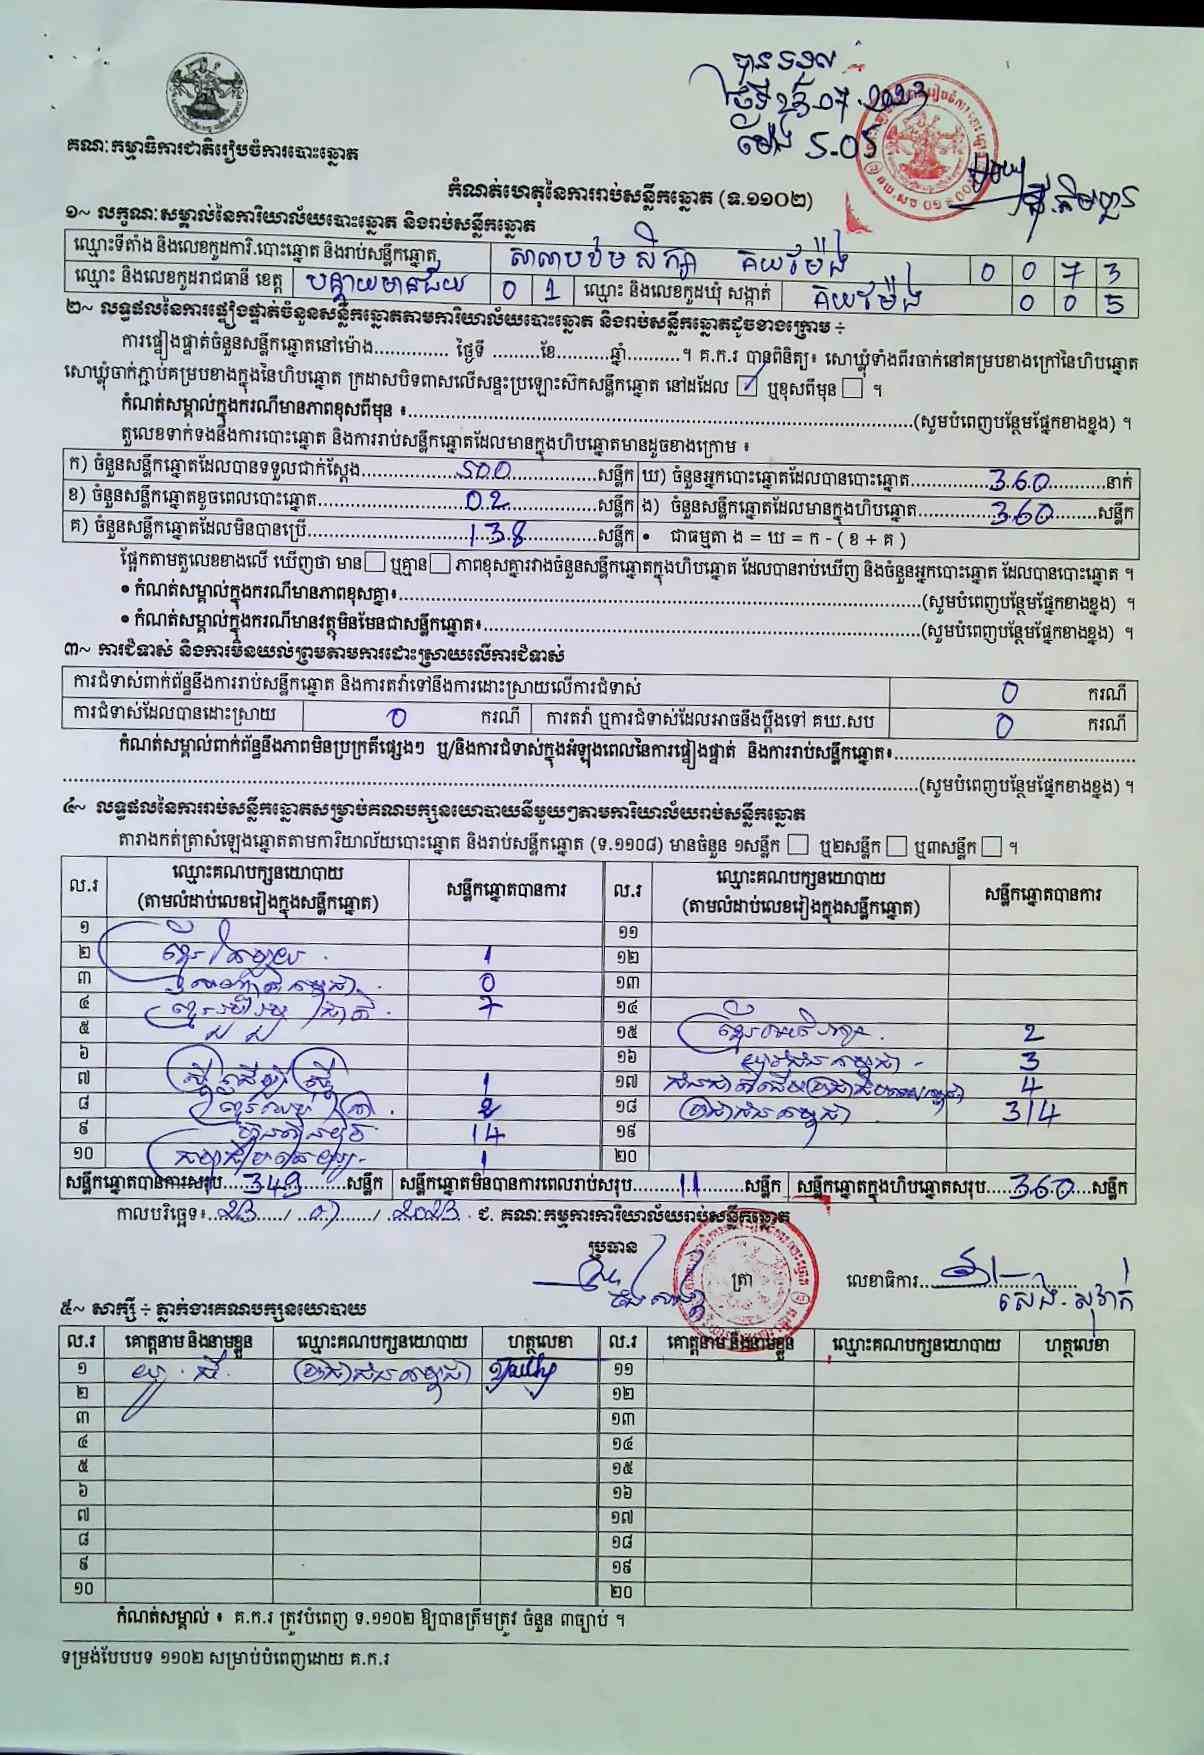 បានទទួល
ថ្ងៃទី 23.07.2023
ម៉ោង 5.05
គណៈកម្មាធិការជាតិរៀបចំការបោះឆ្នោត
កំណត់ហេតុនៃការរាប់សន្លឹកឆ្នោត (ទ.១១០២)
១~ លក្ខណៈសម្គាល់នៃការិយាល័យបោះឆ្នោត និងរាប់សន្លឹកឆ្នោត
ឈ្មោះទីតាំង និងលេខកូដការិ.បោះឆ្នោត និងរាប់សន្លឹកឆ្នោត សាលាបឋមសិក្សា គយម៉ែង 0 0 7 3
ឈ្មោះ និងលេខកូដរាជធានី ខេត្ត បន្ទាយមានជ័យ 0 1 ឈ្មោះ និងលេខកូដឃុំ សង្កាត់ គយម៉ែង 0 0 5
២~ លទ្ធផលនៃការផ្ទៀងផ្ទាត់ចំនួនសន្លឹកឆ្នោតតាមការិយាល័យបោះឆ្នោត និងរាប់សន្លឹកឆ្នោតដូចខាងក្រោម ÷
ការផ្ទៀងផ្ទាត់ចំនួនសន្លឹកឆ្នោតនៅម៉ោង.............. ថ្ងៃទី .........ខែ..........ឆ្នាំ..........។ គ.ក.រ បានពិនិត្យ៖ សោឃ្លុំទាំងពីរចាក់នៅគម្របខាងក្រៅនៃហិបឆ្នោត
សោឃ្លុំចាក់ភ្ជាប់គម្របខាងក្នុងនៃហិបឆ្នោត ក្រដាសបិទពាសលើសន្ទះប្រឡោះស៊កសន្លឹកឆ្នោត នៅដដែល ☑ ឬខុសពីមុន ☐ ។
កំណត់សម្គាល់ក្នុងករណីមានភាពខុសពីមុន ៖..............(សូមបំពេញបន្ថែមផ្នែកខាងខ្នង) ។
តួលេខទាក់ទងនឹងការបោះឆ្នោត និងការរាប់សន្លឹកឆ្នោតដែលមានក្នុងហិបឆ្នោតមានដូចខាងក្រោម ៖
ក) ចំនួនសន្លឹកឆ្នោតដែលបានទទួលជាក់ស្តែង.......500.......សន្លឹក ឃ) ចំនួនអ្នកបោះឆ្នោតដែលបានបោះឆ្នោត.......360.......នាក់
ខ) ចំនួនសន្លឹកឆ្នោតខូចពេលបោះឆ្នោត.......02.......សន្លឹក ង) ចំនួនសន្លឹកឆ្នោតដែលមានក្នុងហិបឆ្នោត.......360.......សន្លឹក
គ) ចំនួនសន្លឹកឆ្នោតដែលមិនបានប្រើ.......138.......សន្លឹក • ជាធម្មតា ង = ឃ = ក - ( ខ + គ )
ផ្អែកតាមតួលេខខាងលើ ឃើញថា មាន ☐ ឬគ្មាន ☐ ភាពខុសគ្នារវាងចំនួនសន្លឹកឆ្នោតក្នុងហិបឆ្នោត ដែលបានរាប់ឃើញ និងចំនួនអ្នកបោះឆ្នោត ដែលបានបោះឆ្នោត ។
• កំណត់សម្គាល់ក្នុងករណីមានភាពខុសគ្នា៖..............(សូមបំពេញបន្ថែមផ្នែកខាងខ្នង) ។
• កំណត់សម្គាល់ក្នុងករណីមានវត្ថុមិនមែនជាសន្លឹកឆ្នោត៖..............(សូមបំពេញបន្ថែមផ្នែកខាងខ្នង) ។
៣~ ការជំទាស់ និងការមិនយល់ព្រមតាមការដោះស្រាយលើការជំទាស់
ការជំទាស់ពាក់ព័ន្ធនឹងការរាប់សន្លឹកឆ្នោត និងការតវ៉ាទៅនឹងការដោះស្រាយលើការជំទាស់ 0 ករណី
ការជំទាស់ដែលបានដោះស្រាយ 0 ករណី ការតវ៉ា ឬការជំទាស់ដែលអាចនឹងប្តឹងទៅ គឃ.សប 0 ករណី
កំណត់សម្គាល់ពាក់ព័ន្ធនឹងភាពមិនប្រក្រតីផ្សេងៗ ឬ/និងការជំទាស់ក្នុងអំឡុងពេលនៃការផ្ទៀងផ្ទាត់ និងការរាប់សន្លឹកឆ្នោត៖..............
..............(សូមបំពេញបន្ថែមផ្នែកខាងខ្នង) ។
៤~ លទ្ធផលនៃការរាប់សន្លឹកឆ្នោតសម្រាប់គណបក្សនយោបាយនីមួយៗតាមការិយាល័យរាប់សន្លឹកឆ្នោត
តារាងកត់ត្រាសំឡេងឆ្នោតតាមការិយាល័យបោះឆ្នោត និងរាប់សន្លឹកឆ្នោត (ទ.១១០៨) មានចំនួន ១សន្លឹក ☐ ឬ២សន្លឹក ☐ ឬ៣សន្លឹក ☐ ។
ល.រ ឈ្មោះគណបក្សនយោបាយ (តាមលំដាប់លេខរៀងក្នុងសន្លឹកឆ្នោត) សន្លឹកឆ្នោតបានការ ល.រ ឈ្មោះគណបក្សនយោបាយ (តាមលំដាប់លេខរៀងក្នុងសន្លឹកឆ្នោត) សន្លឹកឆ្នោតបានការ
១ ១១
២ 1 ១២
៣ 0 ១៣
៤ 7 ១៤
៥ ១៥ 2
៦ ១៦ 3
៧ 1 ១៧ 4
៨ 2 ១៨ ប្រជាជនកម្ពុជា 314
៩ 14 ១៩
១០ 1 ២០
សន្លឹកឆ្នោតបានការសរុប....349....សន្លឹក សន្លឹកឆ្នោតមិនបានការពេលរាប់សរុប....11....សន្លឹក សន្លឹកឆ្នោតក្នុងហិបឆ្នោតសរុប....360....សន្លឹក
កាលបរិច្ឆេទ៖ 23 / 07 / 2023 ជ. គណៈកម្មការការិយាល័យរាប់សន្លឹកឆ្នោត
ប្រធាន ត្រា លេខាធិការ
៥~ សាក្សី ÷ ភ្នាក់ងារគណបក្សនយោបាយ
ល.រ គោត្តនាម និងនាមខ្លួន ឈ្មោះគណបក្សនយោបាយ ហត្ថលេខា ល.រ គោត្តនាម និងនាមខ្លួន ឈ្មោះគណបក្សនយោបាយ ហត្ថលេខា
១ ប្រជាជនកម្ពុជា ១១
២ ១២
៣ ១៣
៤ ១៤
៥ ១៥
៦ ១៦
៧ ១៧
៨ ១៨
៩ ១៩
១០ ២០
កំណត់សម្គាល់ ៖ គ.ក.រ ត្រូវបំពេញ ទ.១១០២ ឱ្យបានត្រឹមត្រូវ ចំនួន ៣ច្បាប់ ។
ទម្រង់បែបបទ ១១០២ សម្រាប់បំពេញដោយ គ.ក.រ